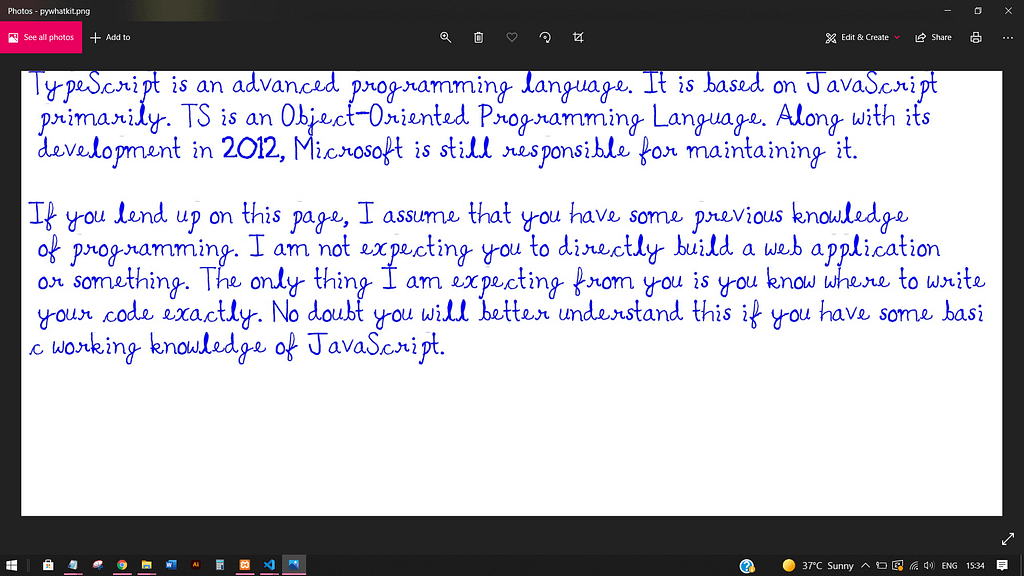 Photos - pywhatkit.png
See all photos
Add to
Edit & Create
Share
TypeScript is an advanced programming language. It is based on JavaScript
primarily. TS is an Object-Oriented Programming Language. Along with its
development in 2012, Microsoft is still responsible for maintaining it.
If you lend up on this page, I assume that you have some previous knowledge
of programming. I am not expecting you to directly build a web application
or something. The only thing I am expecting from you is you know where to write
your code exactly. No doubt you will better understand this if you have some basi
c working knowledge of JavaScript.
37°C Sunny
ENG
15:34